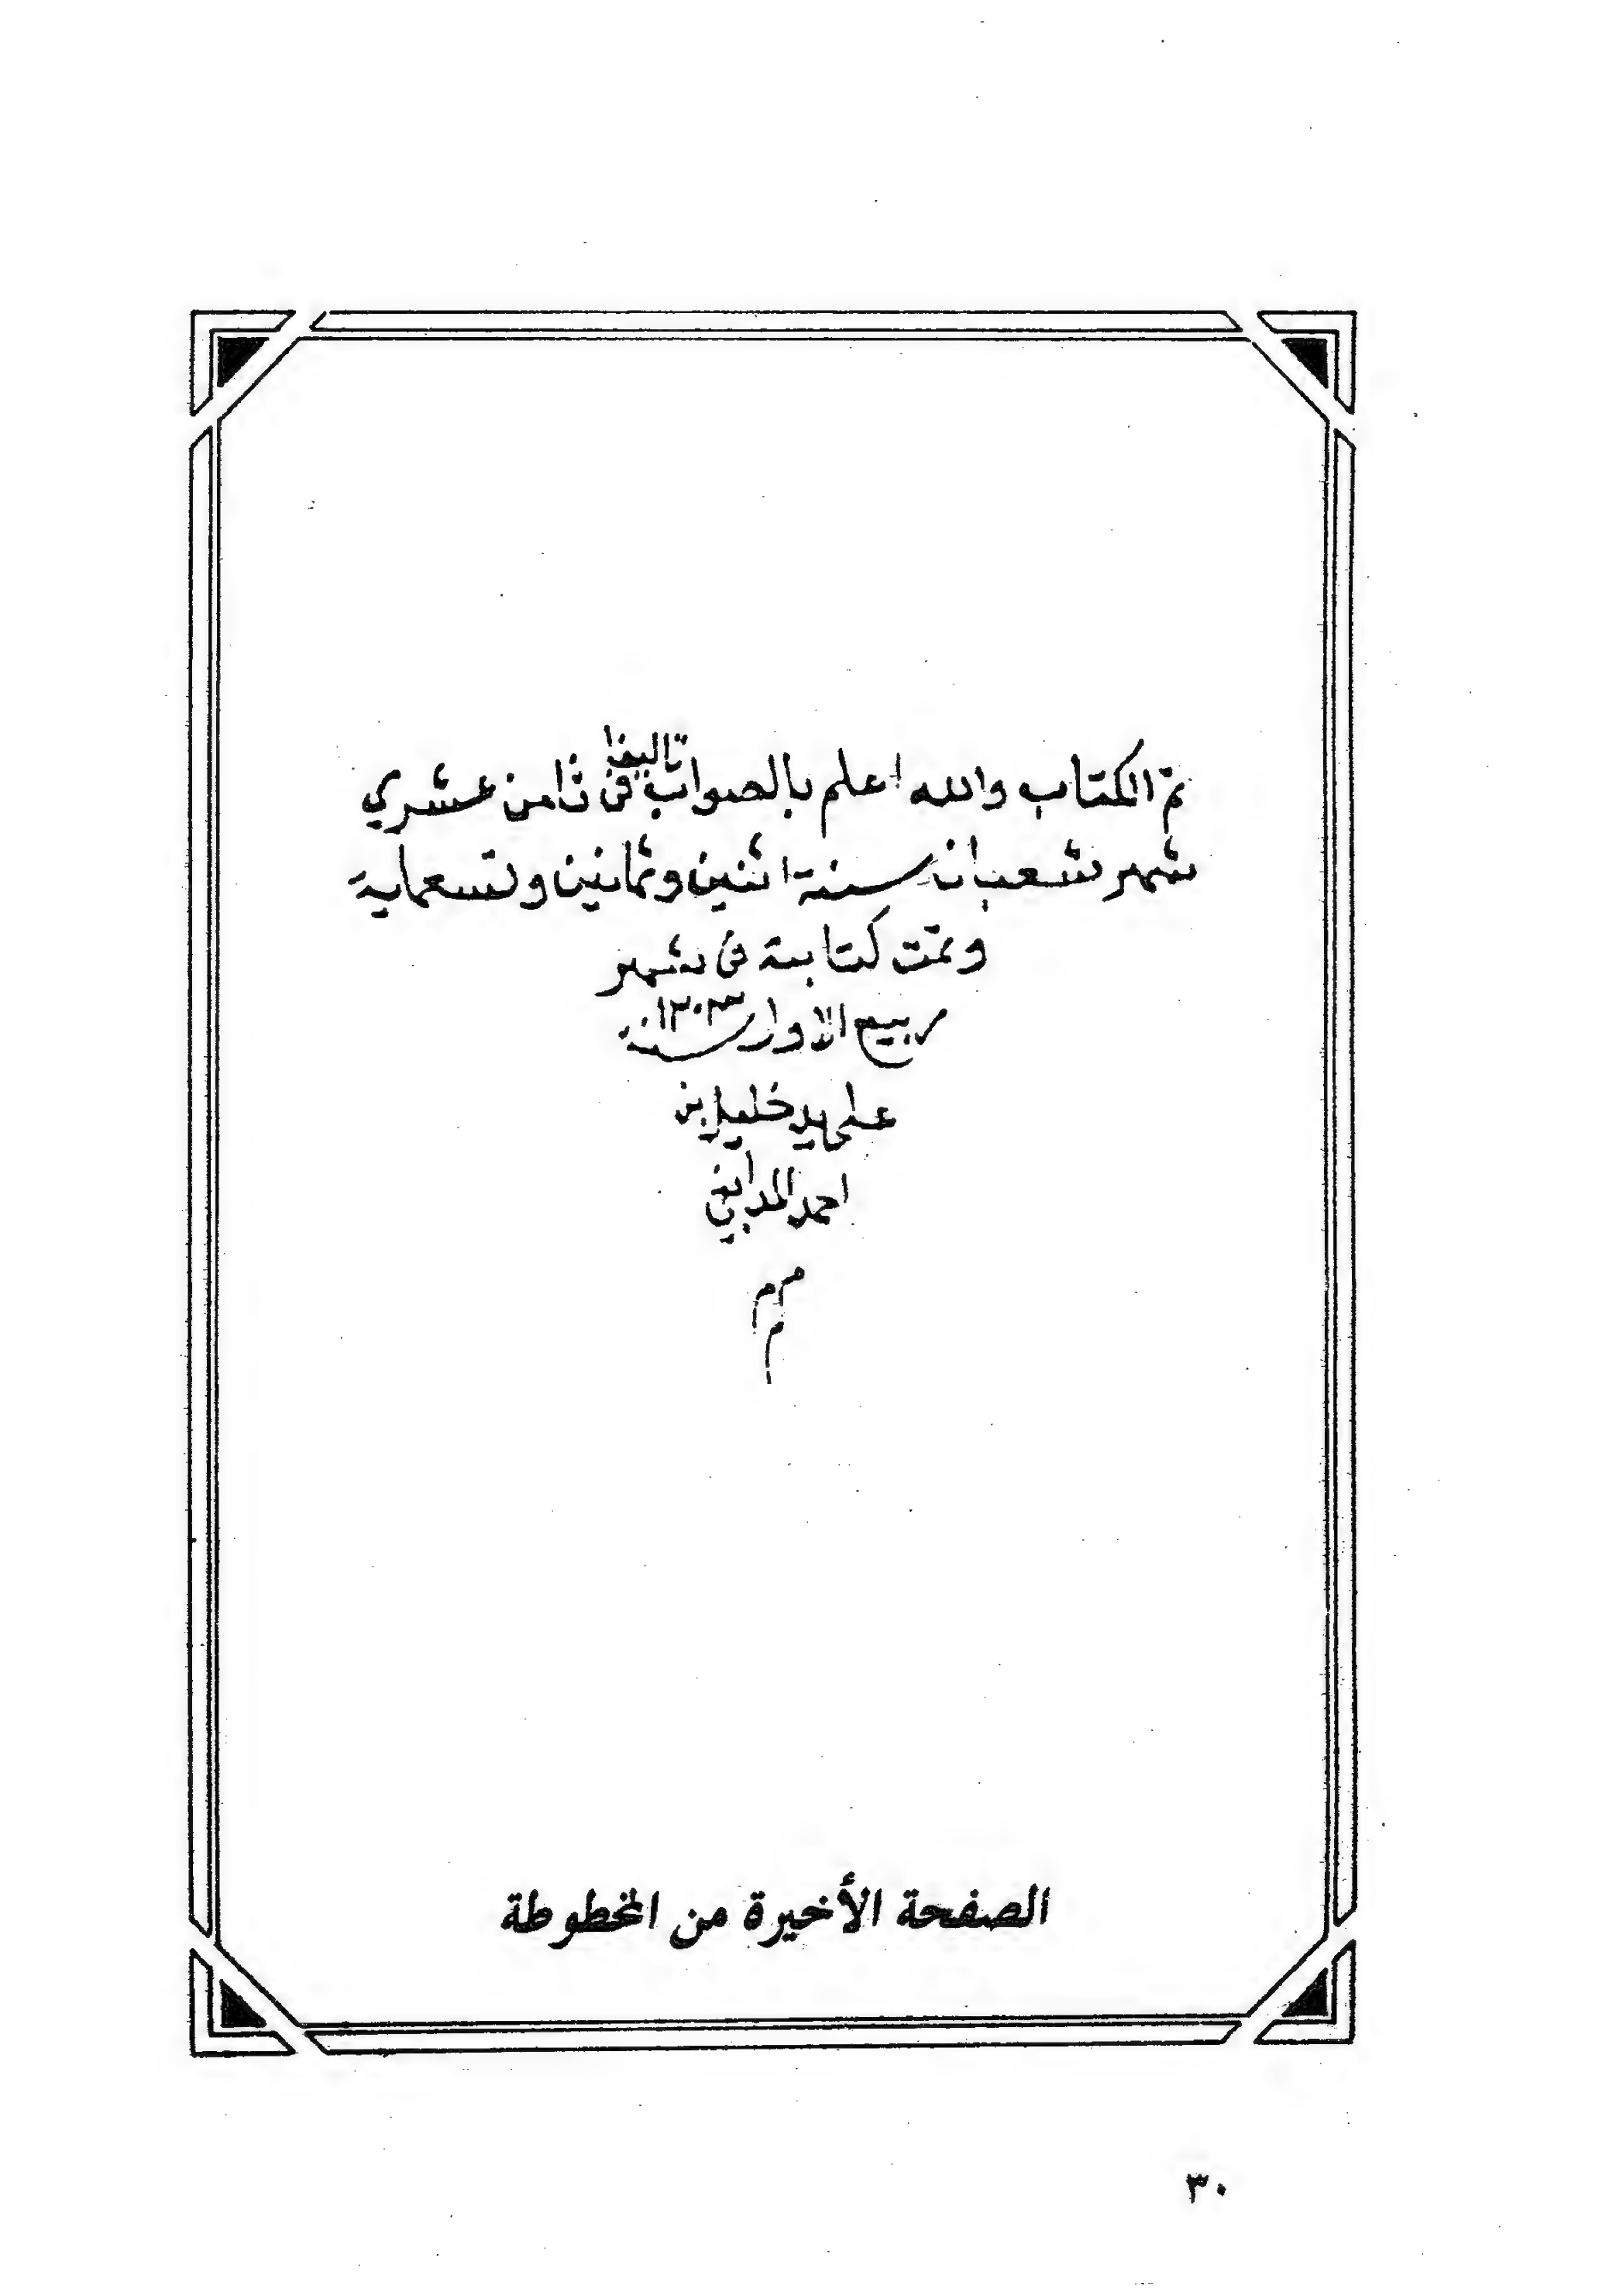 تم الكتاب والله اعلم بالصواب تاليفا في ثامن عشري
شهر شعبان سنة اثنين وثمانين وتسعماية
وتمت كتابية في شهر
ربيع الاول سنة ١٣٠٣
على يد خليل بن
احمد المدابغي
م م
م
الصفحة الأخيرة من المخطوطة
٣٠